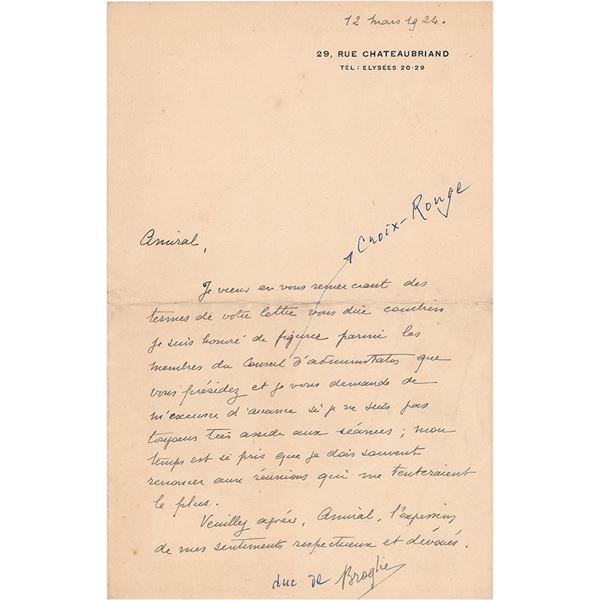 12 mars 1924.
29, RUE CHATEAUBRIAND
TEL : ELYSÉES 20-29
Croix-Rouge
Amiral,
Je veux en vous remerciant des
termes de votre lettre vous dire combien
je suis honoré de figurer parmi les
membres du Conseil d'administration que
vous présidez et je vous demande de
m'excuser d'avance si je ne suis pas
toujours très assidu aux séances ; mon
temps est si pris que je dois souvent
renoncer aux réunions qui me tenteraient
le plus.
Veuillez agréer, Amiral, l'expression
de mes sentiments respectueux et dévoués.
duc de Broglie